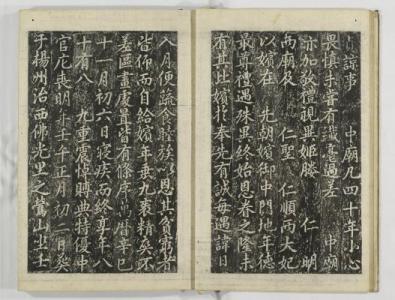 諒事　中庙凡四十年小心
畏慎未嘗有過差　中庙
亦加敬禮視異姬勝　仁明
两庙及　仁聖　仁順两大妃
以嬪在　先朝嬪御中門地年德
最尊禮遇殊異終始恩眷之隆未
有其比嬪於奉先有誠每遇諱日
入月便蔬食睦族以恩其貧窮者
皆仰而自給嬪年垂九袠精爽不
差區畫處置皆有條序萬曆辛巳
十一月初六日寝疾而終享年八
十有八　九重震悼賻典特優中
官庀喪明年壬午正月初二日癸
于楊州治西佛光里之鶯山坐壬